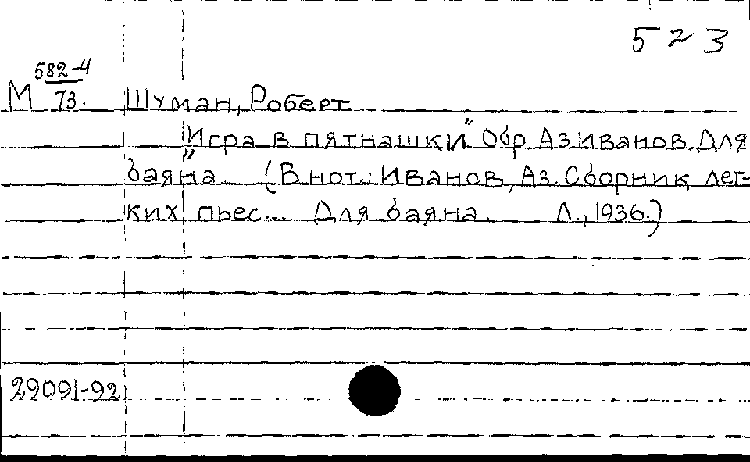 523
М 582-4
73. Шуман, Роберт
"Игра в пятнашки" Обр. Аз. Иванов. Для
баяна. (В нот.: Иванов, Аз. Сборник лег-
ких пьес... Для баяна. Л., 1936.)
29091-92